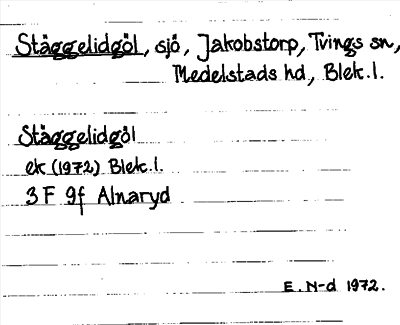 Ståggelidgöl, sjö, Jakobstorp, Tvings sn,
Medelstads hd, Blek.l.
Ståggelidgöl
ek (1972) Blek.l.
3 F 9f Alnaryd
E. N-d 1972.